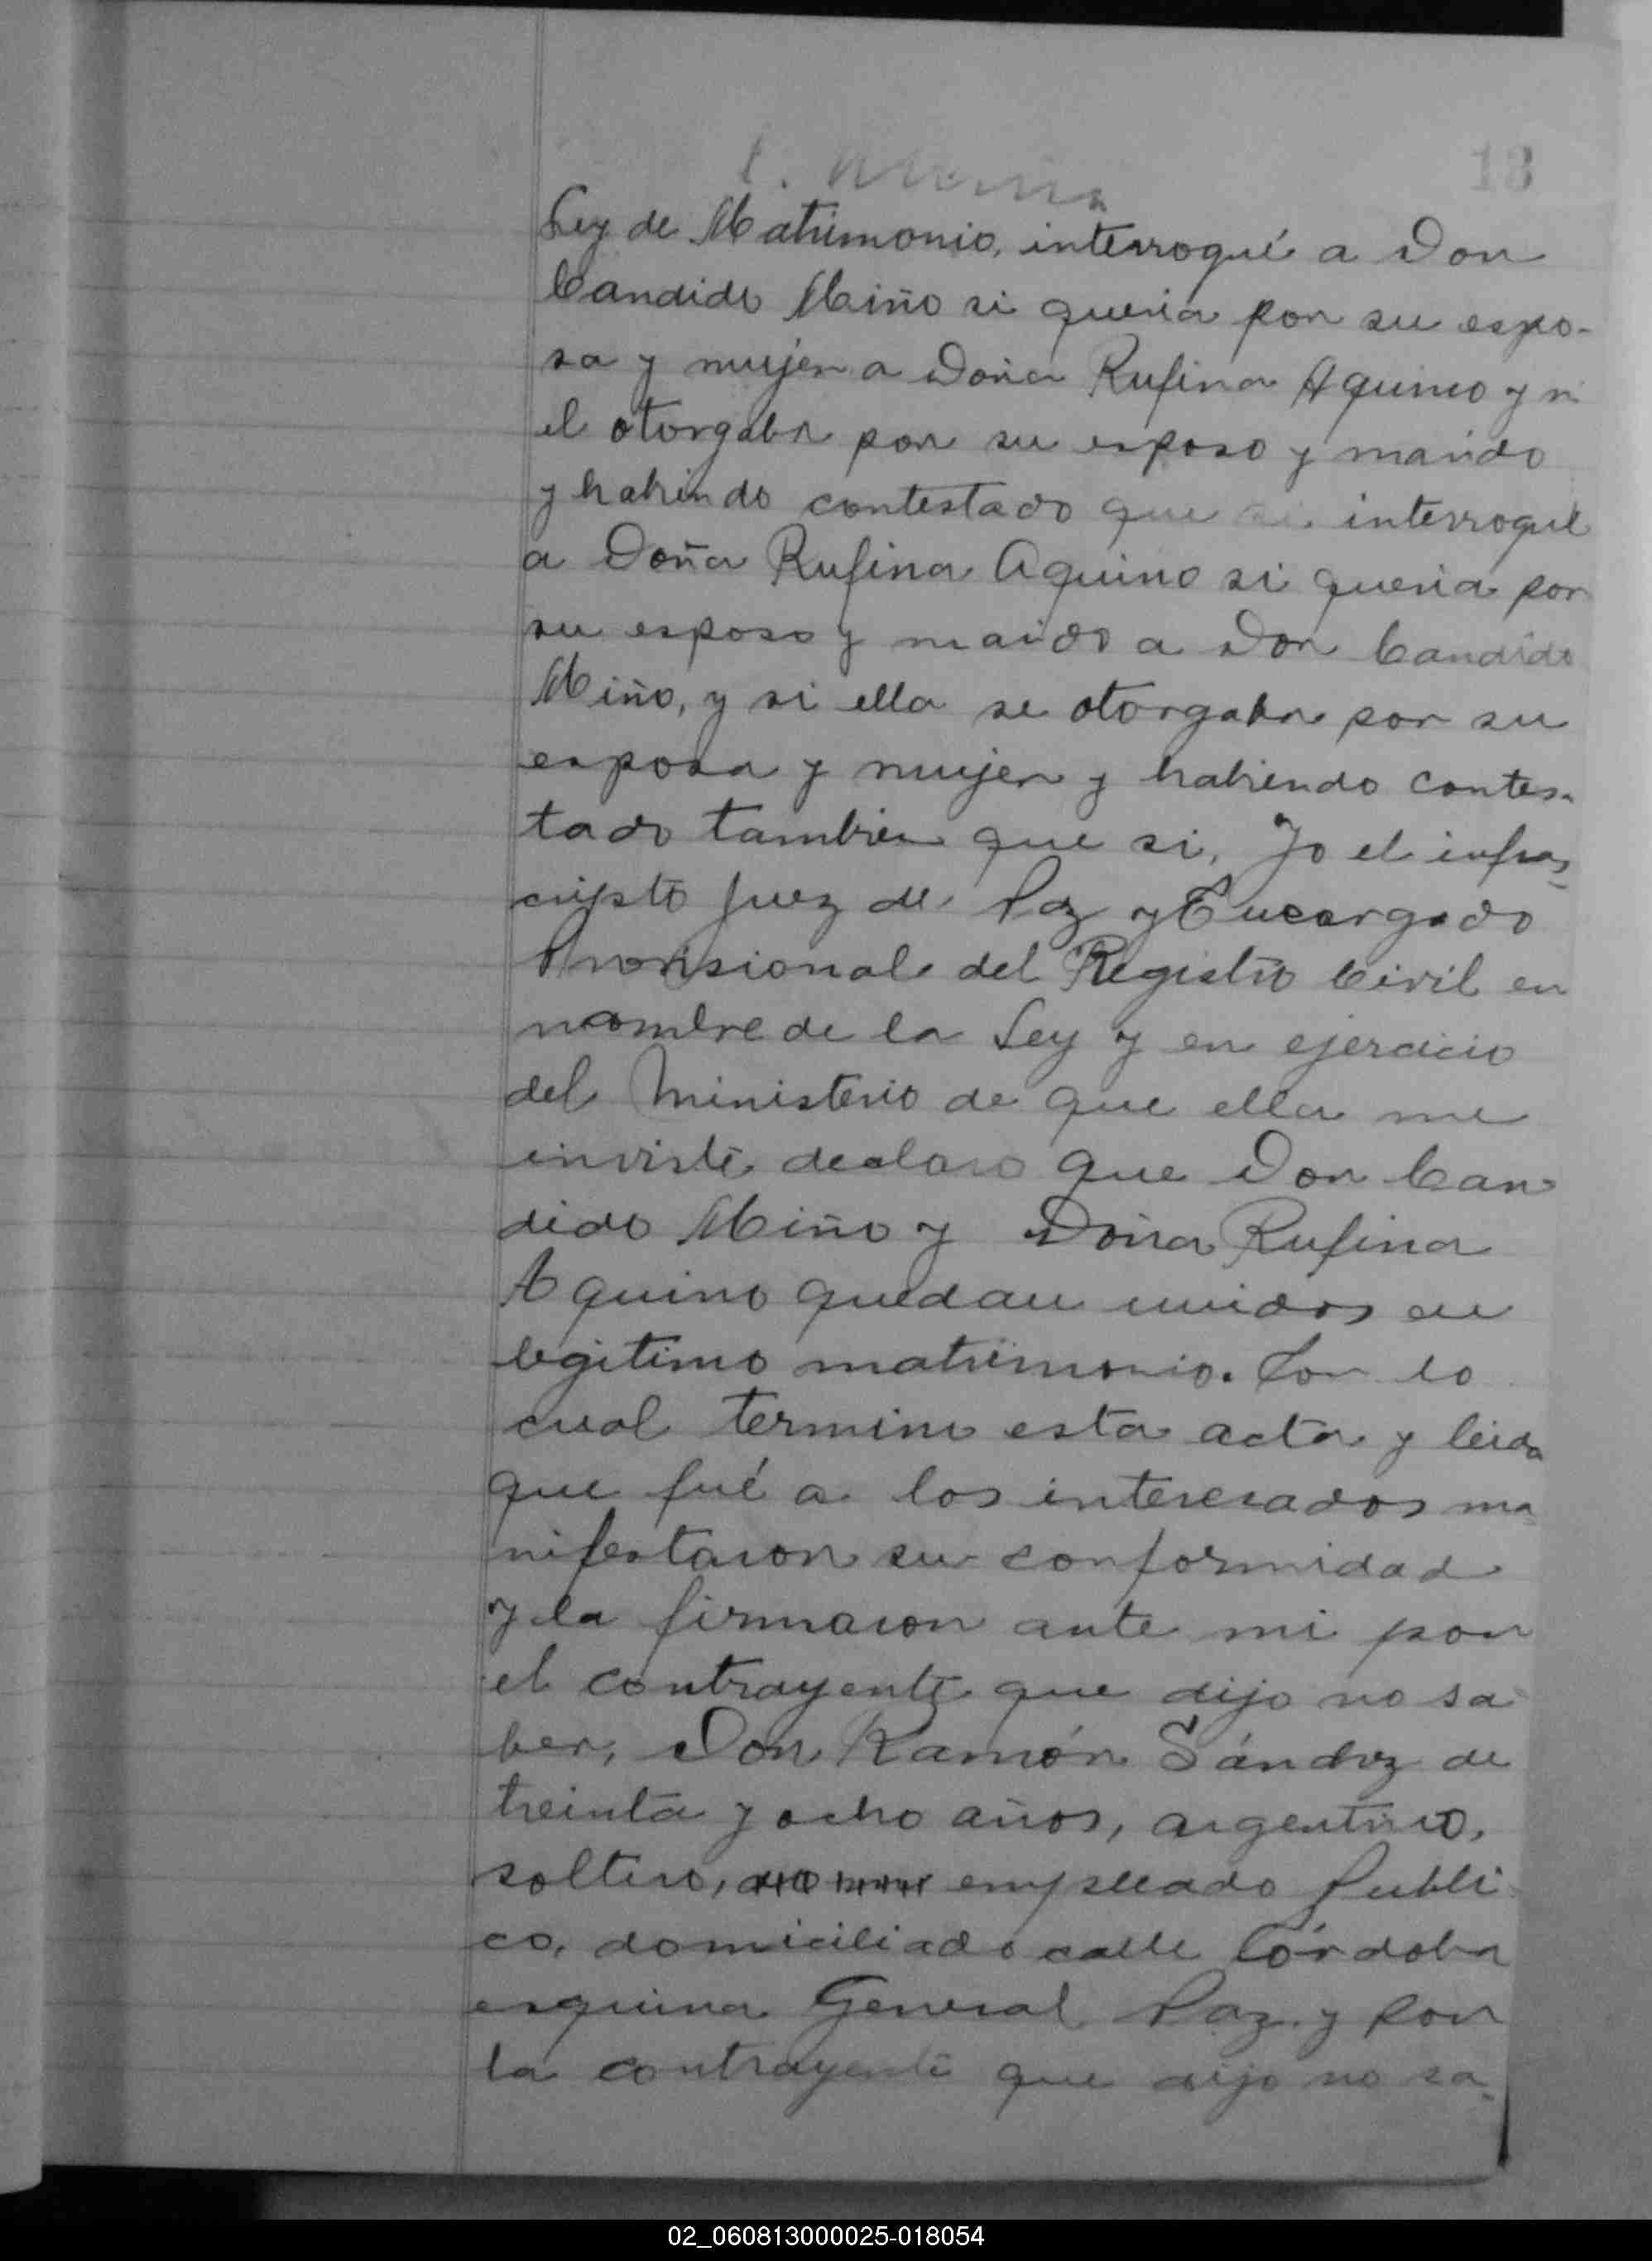 13
Ley de Matrimonio, interrogué a Don
Candido Miño si queria por su espo-
sa y mujer a Doña Rufina Aquino y si
el otorgaba por su esposo y marido
y habiendo contestado que si interrogué
a Doña Rufina Aquino si queria por
su esposo y marido a Don Candido
Miño, y si ella se otorgaba por su
esposa y mujer y habiendo contes-
tado tambien que si, Yo el infras-
cripto Juez de Paz y Encargado
Provisional del Registro Civil en
nombre de la Ley y en ejercicio
del Ministerio de que ella me
inviste declaro que Don Can
dido Miño y Doña Rufina
Aquino quedan unidos en
legitimo matrimonio. Con lo
cual termino esta acta y leida
que fué a los interesados ma-
nifestaron su conformidad
y la firmaron ante mi por
el contrayente que dijo no sa
ber, Don Ramón Sánchez de
treinta y ocho años, argentino,
soltero, empleado Publi
co, domiciliado calle Córdoba
esquina General Paz y por
la contrayente que dijo no sa-
02_060813000025-018054